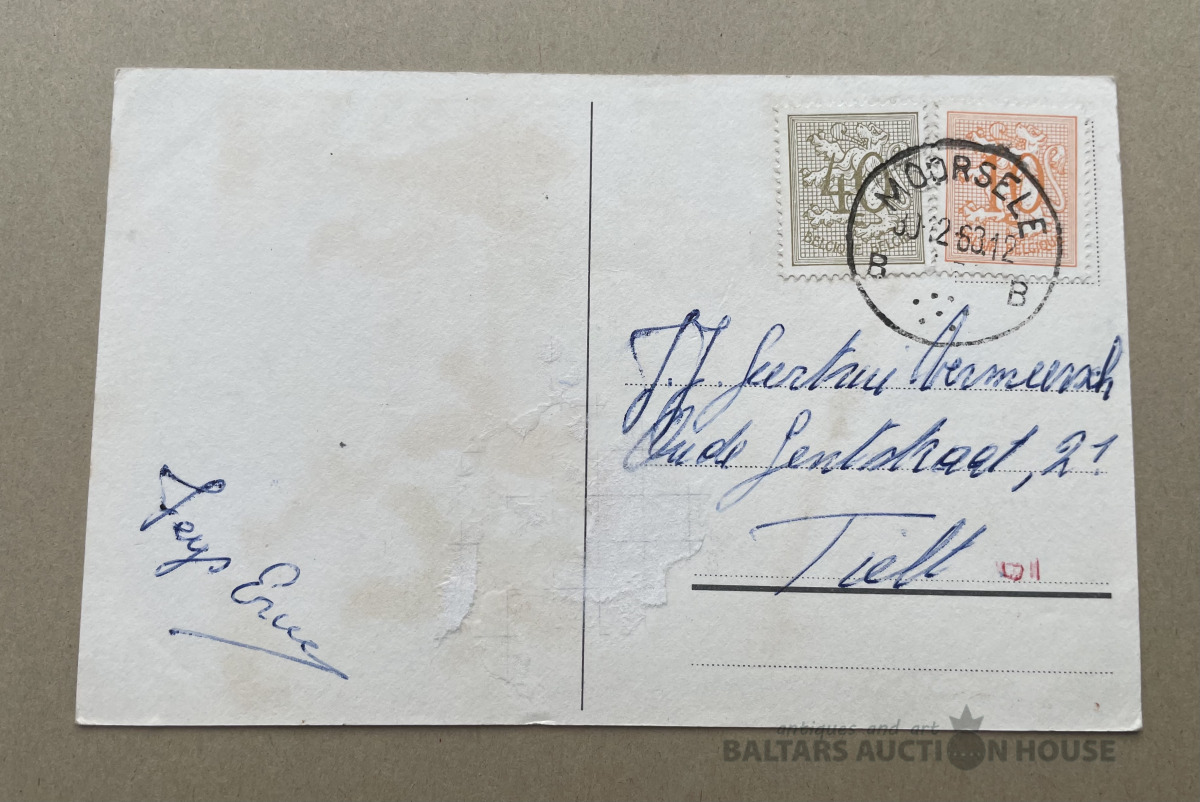 40
BELGIE BELGIQUE
10
BELGIE BELGIQUE
MOORSELE
30-12-63.12
B B
J.J. Geertrui Vermeersch
Oude Gentstraat, 21
Tielt
Erne
antiques and art
BALTARS AUCTION HOUSE